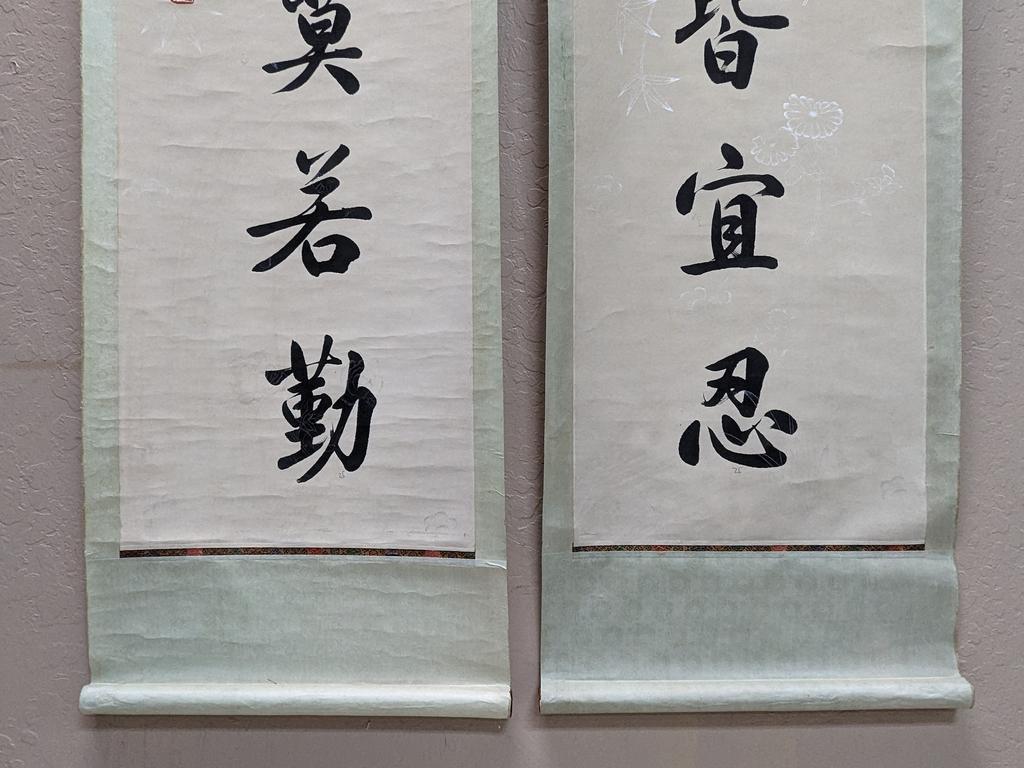 皆宜忍
莫若勤